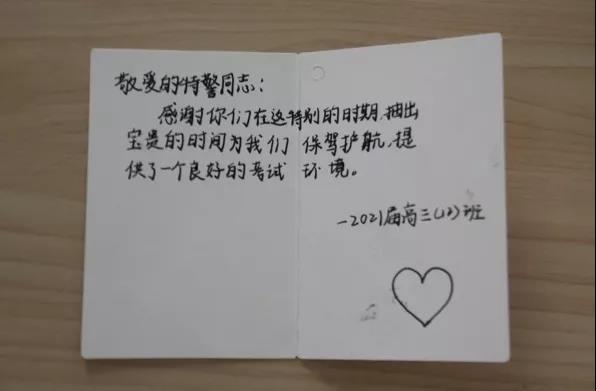 敬爱的特警同志：
感谢你们在这特别的时期,抽出
宝贵的时间为我们保驾护航,提
供了一个良好的考试环境。
—2021届高三(12)班